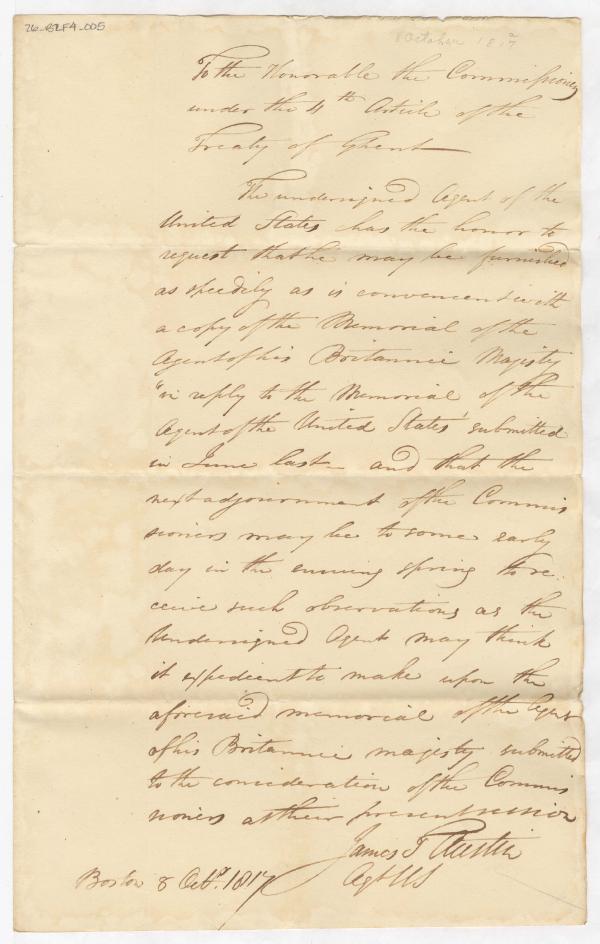 26-B2F4-005
8 October 1817
To the Honorable the Commissioners
under the 4th Article of the
Treaty of Ghent
The undersigned Agent of the
United States has the honor to
request that he may be furnished
as speedily as is convenient with
a copy of the Memorial of the
Agent of his Britannic Majesty
"in reply to the Memorial of the
Agent of the United States" submitted
in June last and that the
next adjournment of the Commis
sioners may be to some early
day in the ensuing spring to re
ceive such observations as the
Undersigned Agent may think
it expedient to make upon the
aforesaid memorial of the Agent
of his Britannic majesty submitted
to the consideration of the Commis
sioners at their present session
James T Austin
Agt US
Boston 8 Octr. 1817